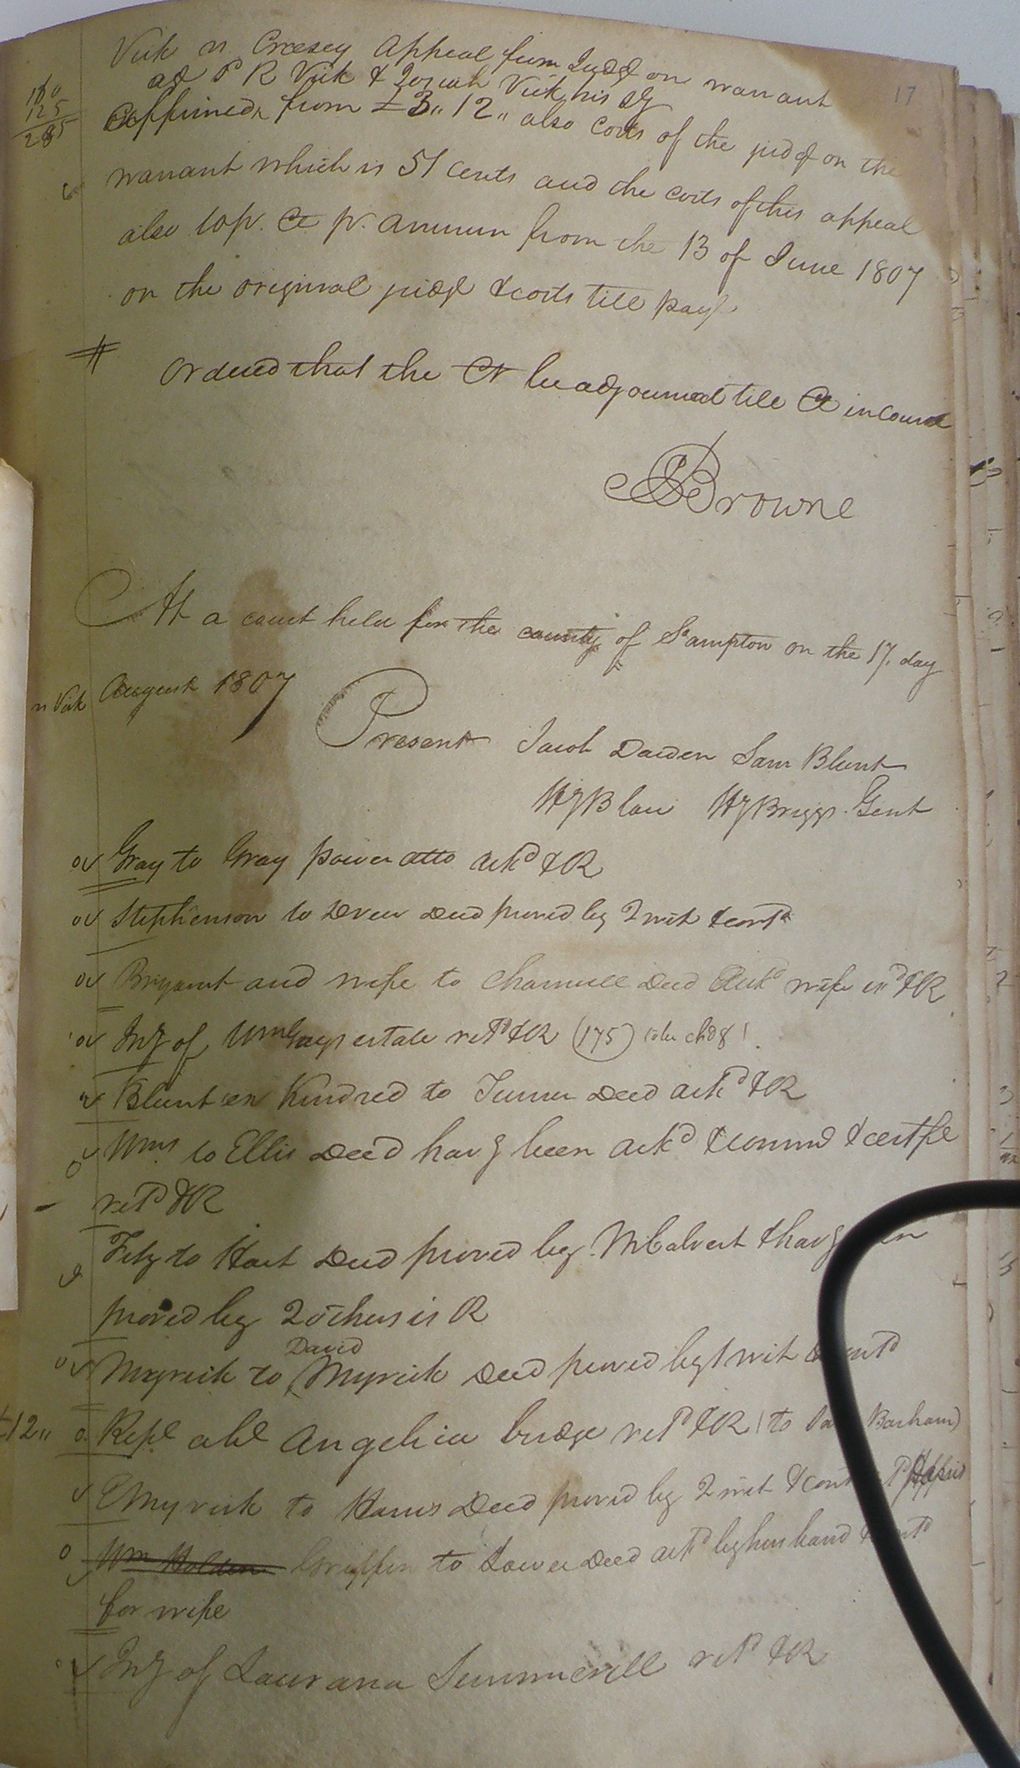 17
Vick vs Creesey Appeal from Judgt on warrant
agt P R Vick & Josiah Vick his sy
160
125
285
Affirmed, from £3,, 12,, also costs of the judgt on the
warrant which is 51 cents and the costs of this appeal
also 10 pr. Ct pr. annum from the 13 of June 1807
on the original judgt & costs till pay
Ordered that the Ct be adjourned till Ct in course
Browne
At a court held for the county of S.ampton on the 17. day
vs Vick August 1807
Present Jacob Darden Sam Blunt
HJBlow HJBriggs Gent
Gray to Gray power atto ackd & R
Stephenson to Drew Deed proved by 2 wit & contd
Bryant and wife to Deed Ackd wife exd & R
Inv of Wm Grays estate retd & R (175)
Blunt Kindred to Turner Deed ackd & R
Wms to Ellis Deed havg been ackd & commd & certfe
retd & R
to Hart Deed proved by. & havg
proved by 2 others is R
Myrick to David Myrick Deed proved by 1 wit
12,, Rept abt Angelica bridge retd & R to Barham)
Myrick to Harris Deed proved by 2 wit
Wm Holden Griffin to Deed ackd by husband
for wife
Inv of Laurana Summerell retd & R